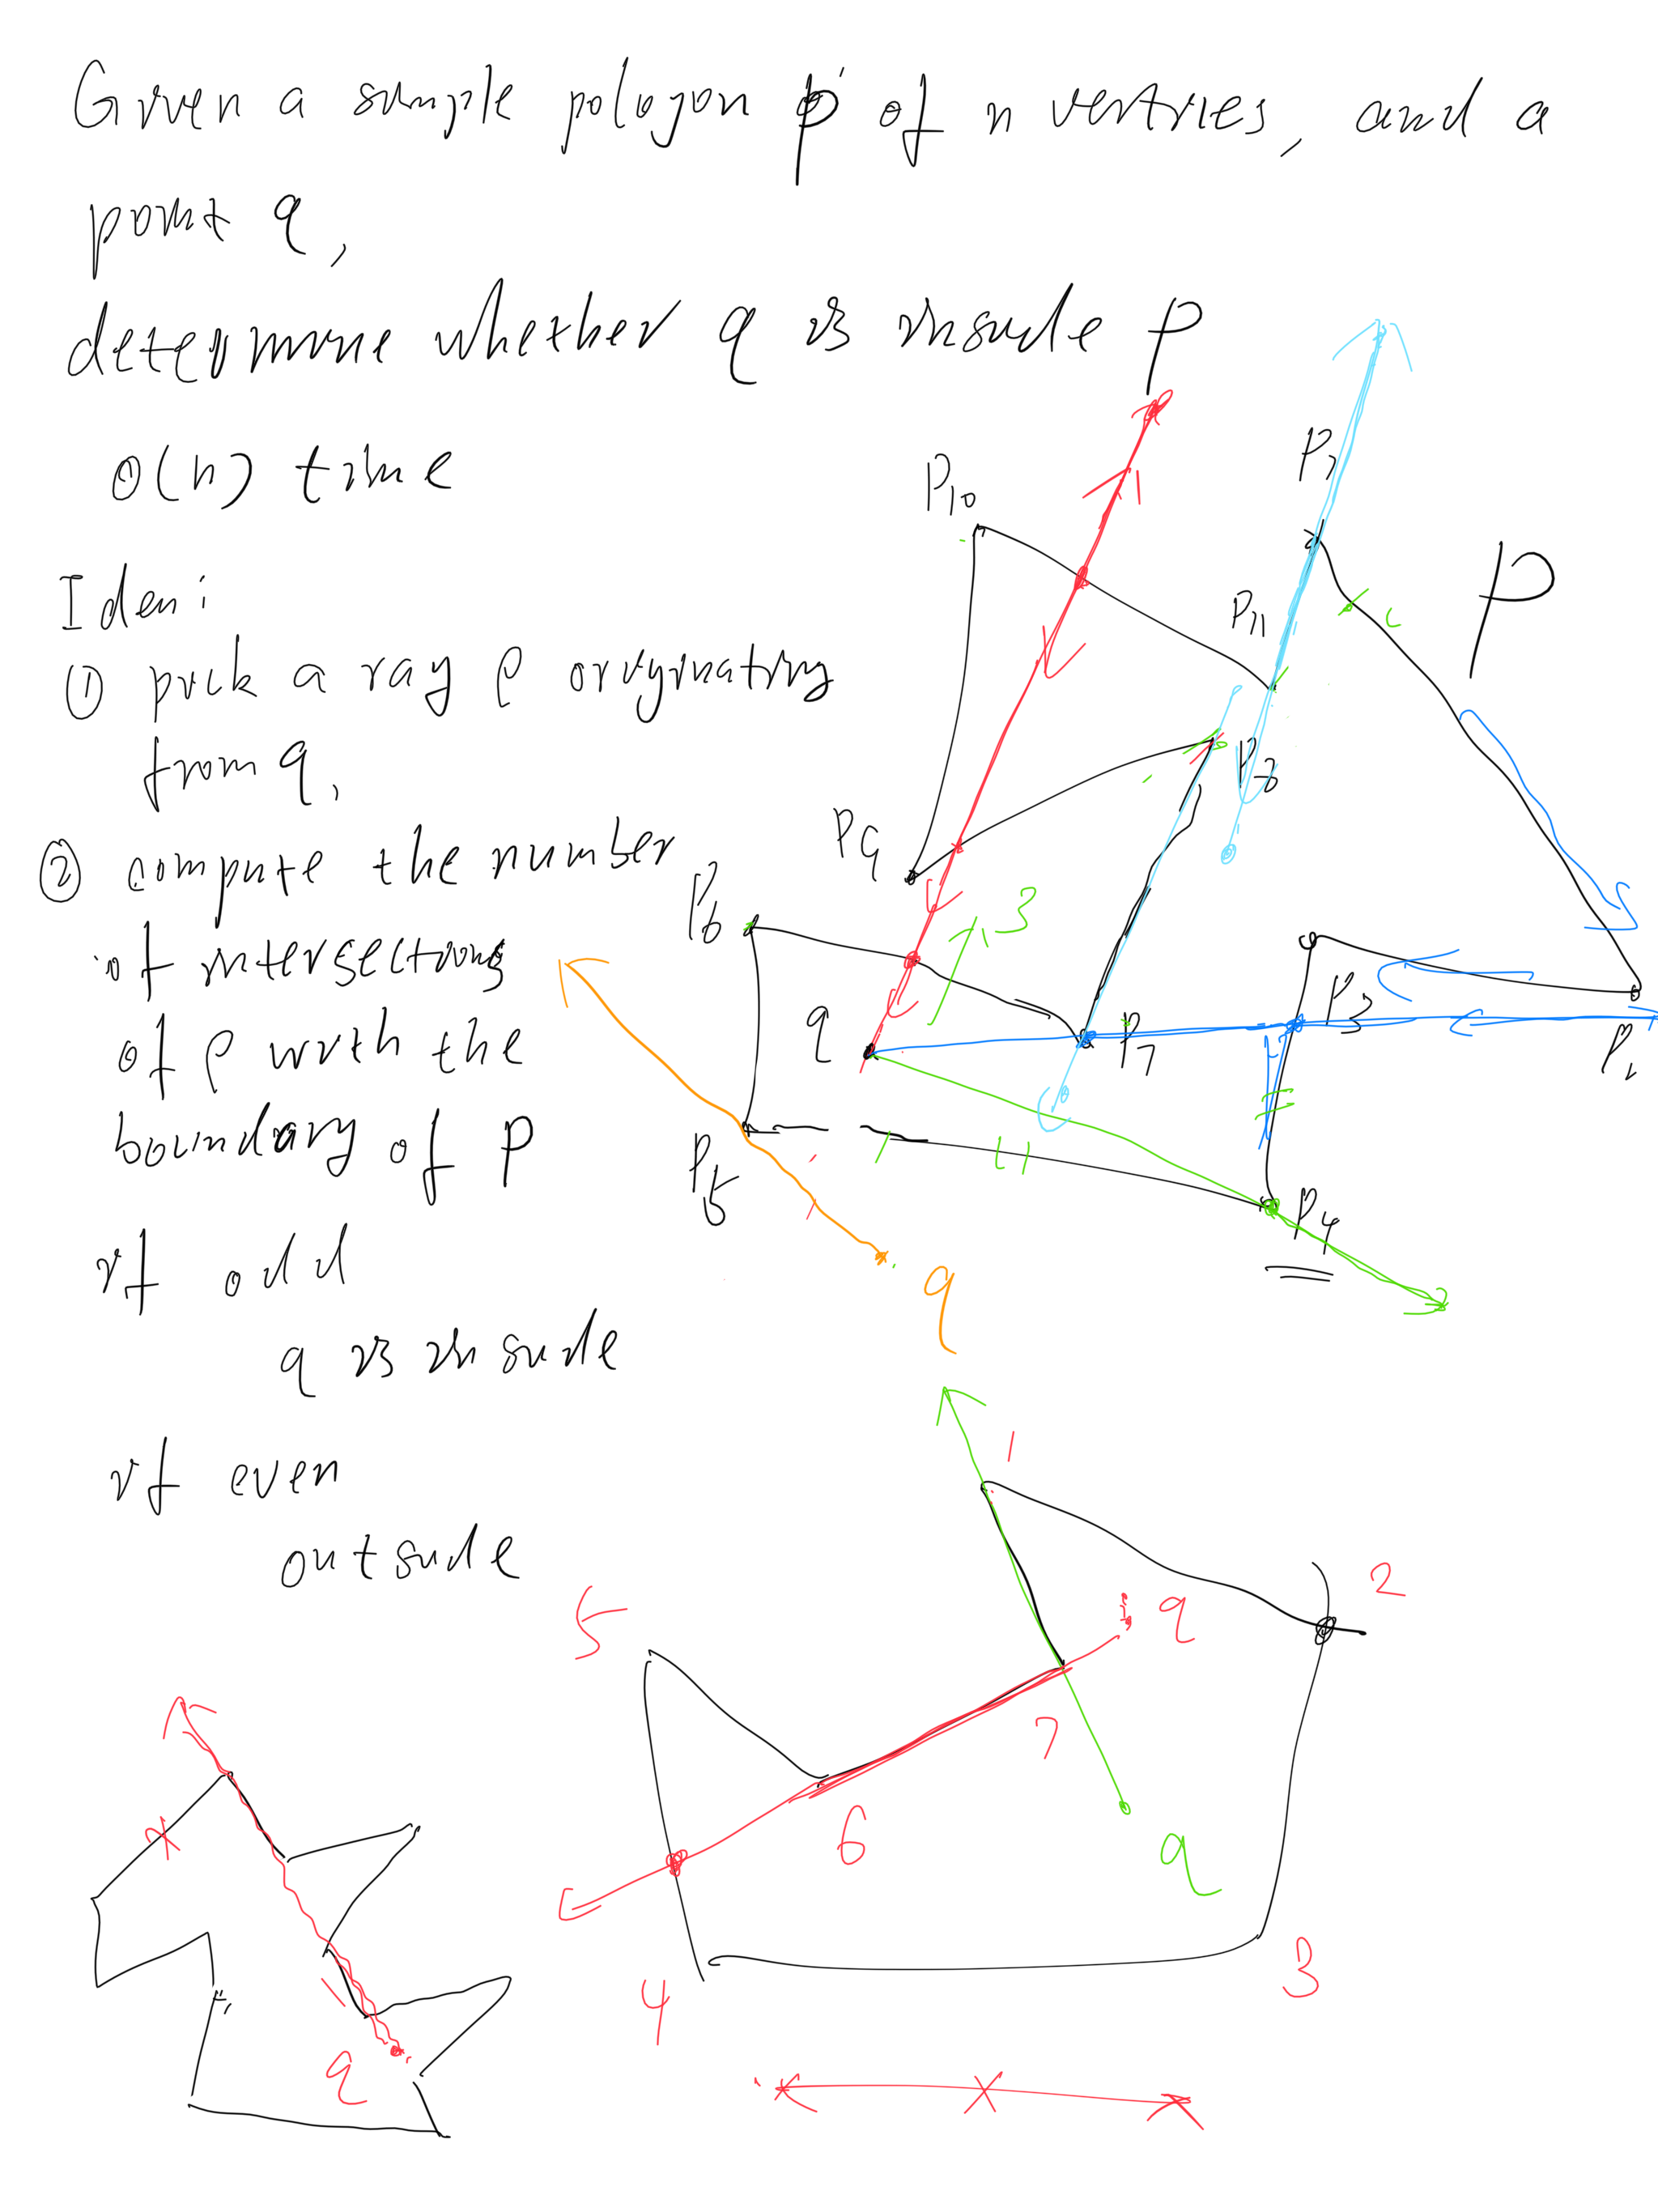 Given a simple polygon P of n vertries, and a
point q,
determine whether q is inside P
O(n) time
Idea:
① pick a ray ρ originating
from q,
② compute the number
of intersections
of ρ with the
boundary of P
if odd
q is inside
if even
outside
P10
P1
P11
P
P8
P9
P6
3
q
P7
P3
P2
P5
4
P4
q
1
2
5
q
7
6
q
4
3
q